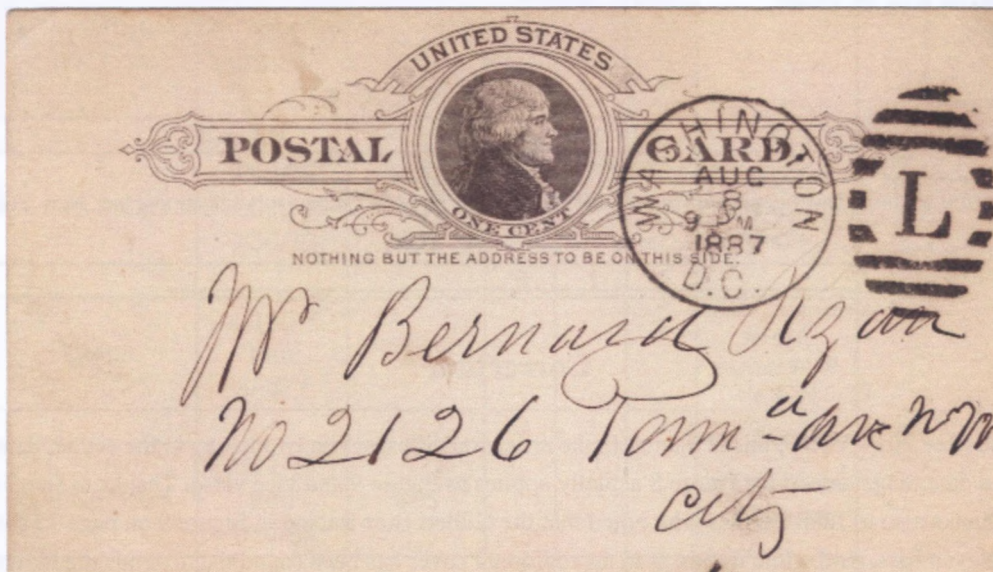 UNITED STATES
POSTAL CARD.
ONE CENT
NOTHING BUT THE ADDRESS TO BE ON THIS SIDE.
WASHINGTON
AUG
8
9 PM
1887
D.C.
L
Mr Bernard Ryan
No 2126 Penn^a ave N W
City